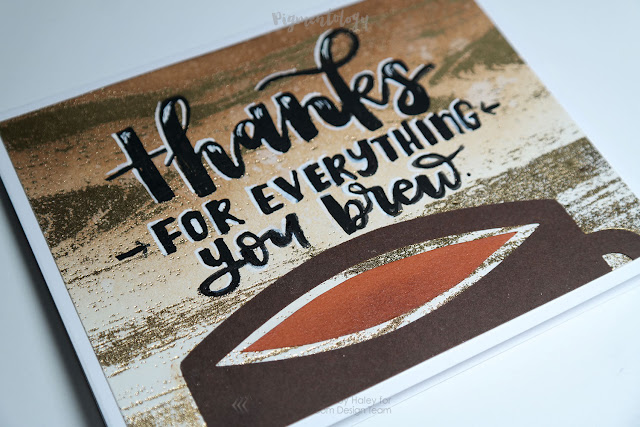 Pigmentology
thanks
FOR EVERYTHING
you brew.
Haley for
Design Team